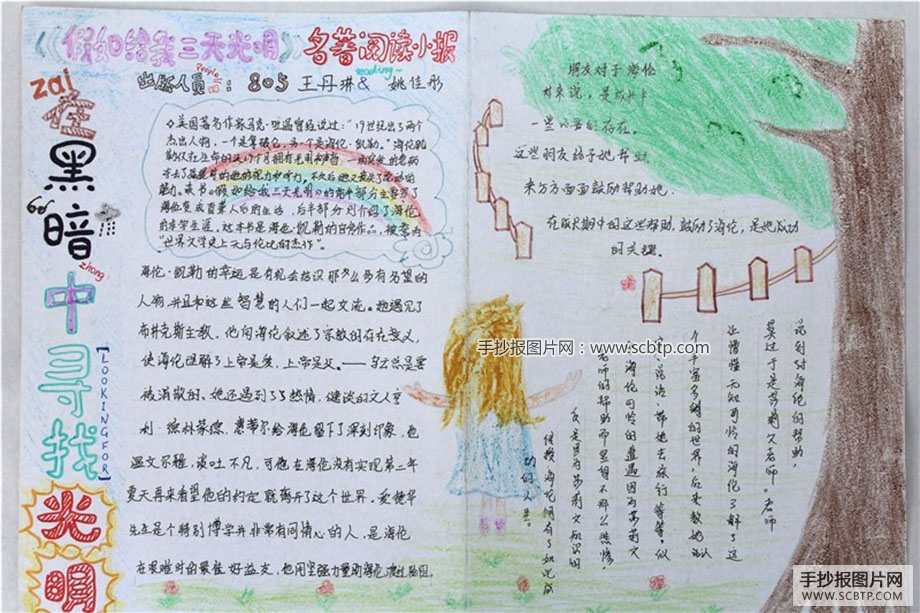 《假如给我三天光明》名著阅读小报
People
reading~
出版人员：805 王丹琳& 姚佳彤
zai
在
黑
暗
zhong
中
寻
找
光
明
[LOOKINGFOR]
◇美国著名作家马克·吐温曾经说过："19世纪出了两个
杰出人物，一个是拿破仑，另一个是海伦·凯勒。"海伦凯
勒仅在生命的头19个月拥有光明和声音，一场突发的急病
能力。本书《假如给我三天光明》的前半部分主要写了
海伦变成盲聋人后的生活，后半部分则介绍了海伦
的求学生涯，这本书是海伦·凯勒的自传作品，被誉为
"世界文学史上无与伦比的杰作"。
海伦·凯勒的幸运是有机会结识那么多有名望的
人物，并且和这些智慧的人们一起交流。她遇见了
布鲁克斯主教，他向海伦叙述了宗教的存在意义，
使海伦理解了上帝是爱，上帝是父。——乌云总是要
被消散的。她还遇到了热情、健谈的文人亨
利·德林蒙德，惠蒂尔给海伦留下了深刻印象，他
温文尔雅，谈吐不凡，可他在海伦没有实现第二年
夏天再来看望他的约定就离开了这个世界。爱德华
先生是个特别博学并非常有同情心的人，是海伦
在艰难时的最佳好益友，他用坚强力量助海伦渡过难关。
朋友对于海伦
来说，是成长中
一些必要的存在。
这些朋友给予她帮助，
来方方面面鼓励帮助她。
在成长期中因这些帮助，鼓励了海伦，是她成功
的关键。
说到对海伦的帮助，
莫过于是莎莉文老师。老师
让懵懂无知可怜的海伦了解了这
个丰富多彩的世界，后来教她认
字、说话，带她去旅行等等。似
海伦可怜的遭遇因为莎莉文
老师的帮助而显得不那么悲惨
手抄报图片网：www.scbtp.com
手抄报图片网
WWW.SCBTP.COM